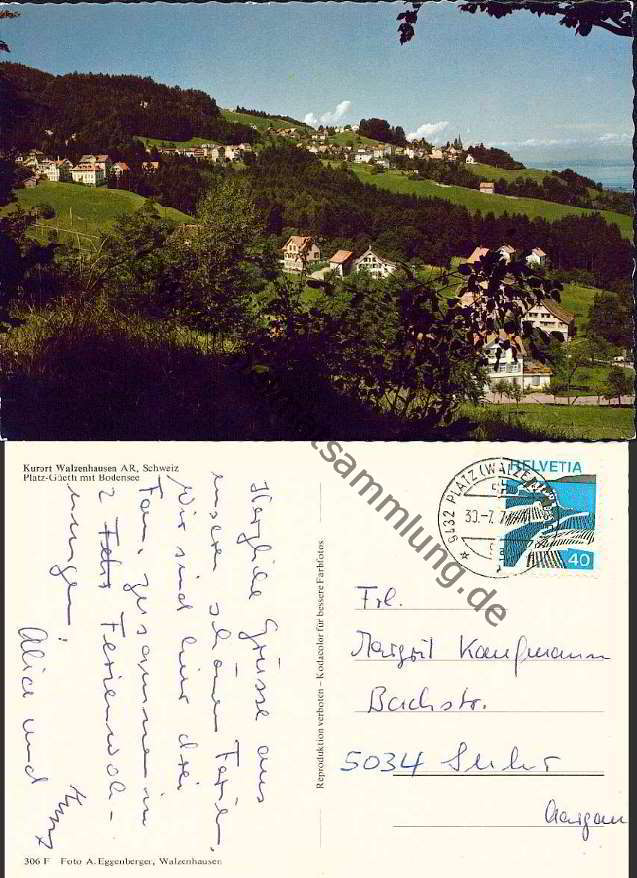 Kurort Walzenhausen AR, Schweiz
Platz-Güeth mit Bodensee
Herzliche Grüsse aus
unseren schönen Ferien.
Wir sind hier drei
Fam. zusammen in
2 Ferienwoh-
nungen.
Alice und
Reproduktion verboten – Kodacolor für bessere Farbfotos
9432 PLATZ (WALZE
30.-7.7
HELVETIA
40
Frl.
Margrit Kaufmann
Bachstr.
5034 Suhr
Aargau
306 F Foto A. Eggenberger, Walzenhausen
tsammlung.de